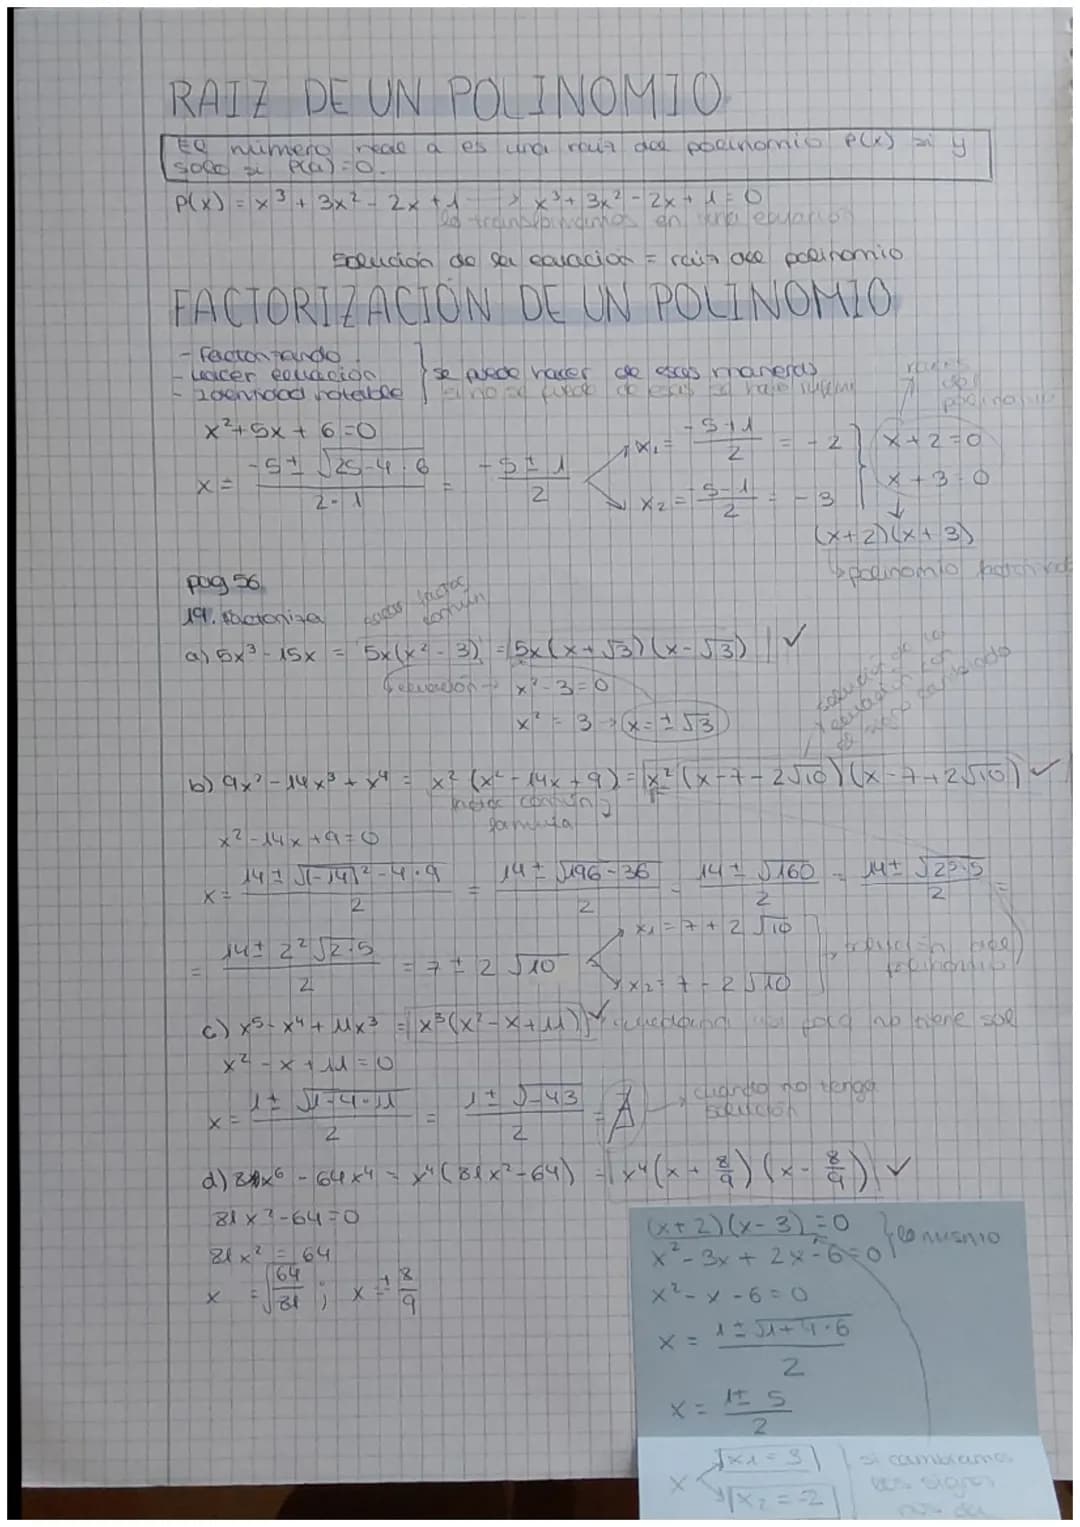 RAIZ DE UN POLINOMIO
El número real a es una raiz del polinomio P(x) si y
solo si P(a)=0.
P(x) = x³ + 3x² - 2x + 1 → x³ + 3x² - 2x + 1 = 0
lo transformamos en una ecuación
Solución de la ecuación = raíz del polinomio
FACTORIZACIÓN DE UN POLINOMIO
- Factorizando
- Hacer ecuación
- Identidad notable
se puede hacer de esas maneras
si no se puede de esas se hace
raices del polinomio
x² + 5x + 6 = 0
x = (-5 ± √(25-4·6))/(2·1) = (-5 ± 1)/2
x₁ = (-5+1)/2 = -2
x₂ = (-5-1)/2 = -3
x + 2 = 0
x + 3 = 0
(x+2)(x+3)
polinomio
pag 56
19. Factoriza
sacar factor común
a) 5x³ - 15x = 5x(x² - 3) = 5x(x+√3)(x-√3) ✓
ecuación → x² - 3 = 0
x² = 3 → x = ±√3
solución de la ecuación con el signo cambiado
b) 9x² - 14x³ + x⁴ = x² (x² - 14x + 9) = x² (x - 7 - 2√10)(x - 7 + 2√10) ✓
común
formula
x² - 14x + 9 = 0
x = (14 ± √((-14)² - 4·9))/2 = (14 ± √(196-36))/2 = (14 ± √160)/2 = (14 ± √(2⁵·5))/2 =
= (14 ± 2²√(2·5))/2 = 7 ± 2√10
x₁ = 7 + 2√10
x₂ = 7 - 2√10
solución del polinomio
c) x⁵ - x⁴ + 11x³ = x³(x² - x + 11) ✓ quedaría no tiene sol
x² - x + 11 = 0
x = (1 ± √(1-4·11))/2 = (1 ± √-43)/2 = ∄
cuando no tenga solución
d) 81x⁶ - 64x⁴ = x⁴(81x² - 64) = x⁴(x + 8/9)(x - 8/9) ✓
81x² - 64 = 0
81x² = 64
x = √(64/81) ; x = ± 8/9
(x+2)(x-3) = 0
x² - 3x + 2x - 6 = 0
lo mismo
x² - x - 6 = 0
x = (1 ± √(1+4·6))/2
x = (1 ± 5)/2
x
x₁ = 3
x₂ = -2
si cambiamos
los signos
nos da